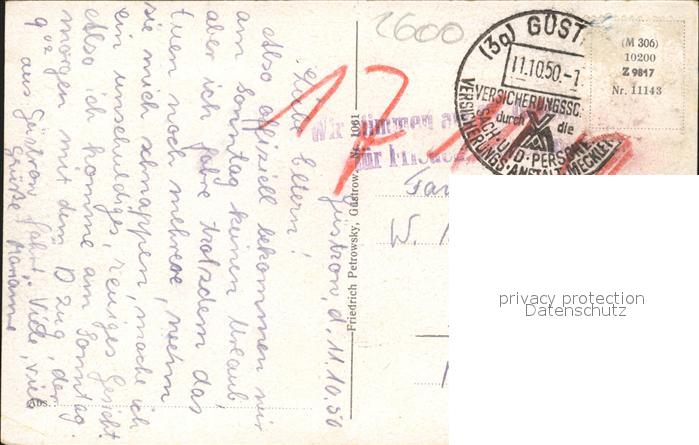 Güstrow, d. 11.10.50
Liebe Eltern!
Also offiziell bekommen wir
am Sonntag keinen Urlaub
aber ich fahre trotzdem das
tuen noch mehrere, wenn
sie mich schnappen, mache ich
ein unschuldiges, reuiges Gesicht
Also ich komme am Sonntag
morgen mit dem D Zug, der
9⁰² aus Güstrow fährt. Viele, viele
Grüße Marianne
Abs.:
Friedrich Petrowsky, Güstrow. Nr. 1061
2600
17
Wir stimmen
für Frieden
(3a) GÜST
11.10.50.-7
VERSICHERUNGSSC
durch die
SACH-UND-PERSONE
VERSICHERUNGS-ANSTALT MECKLEN
(M 306)
10200
Z 9817
Nr. 11143
Fa
W.
privacy protection
Datenschutz